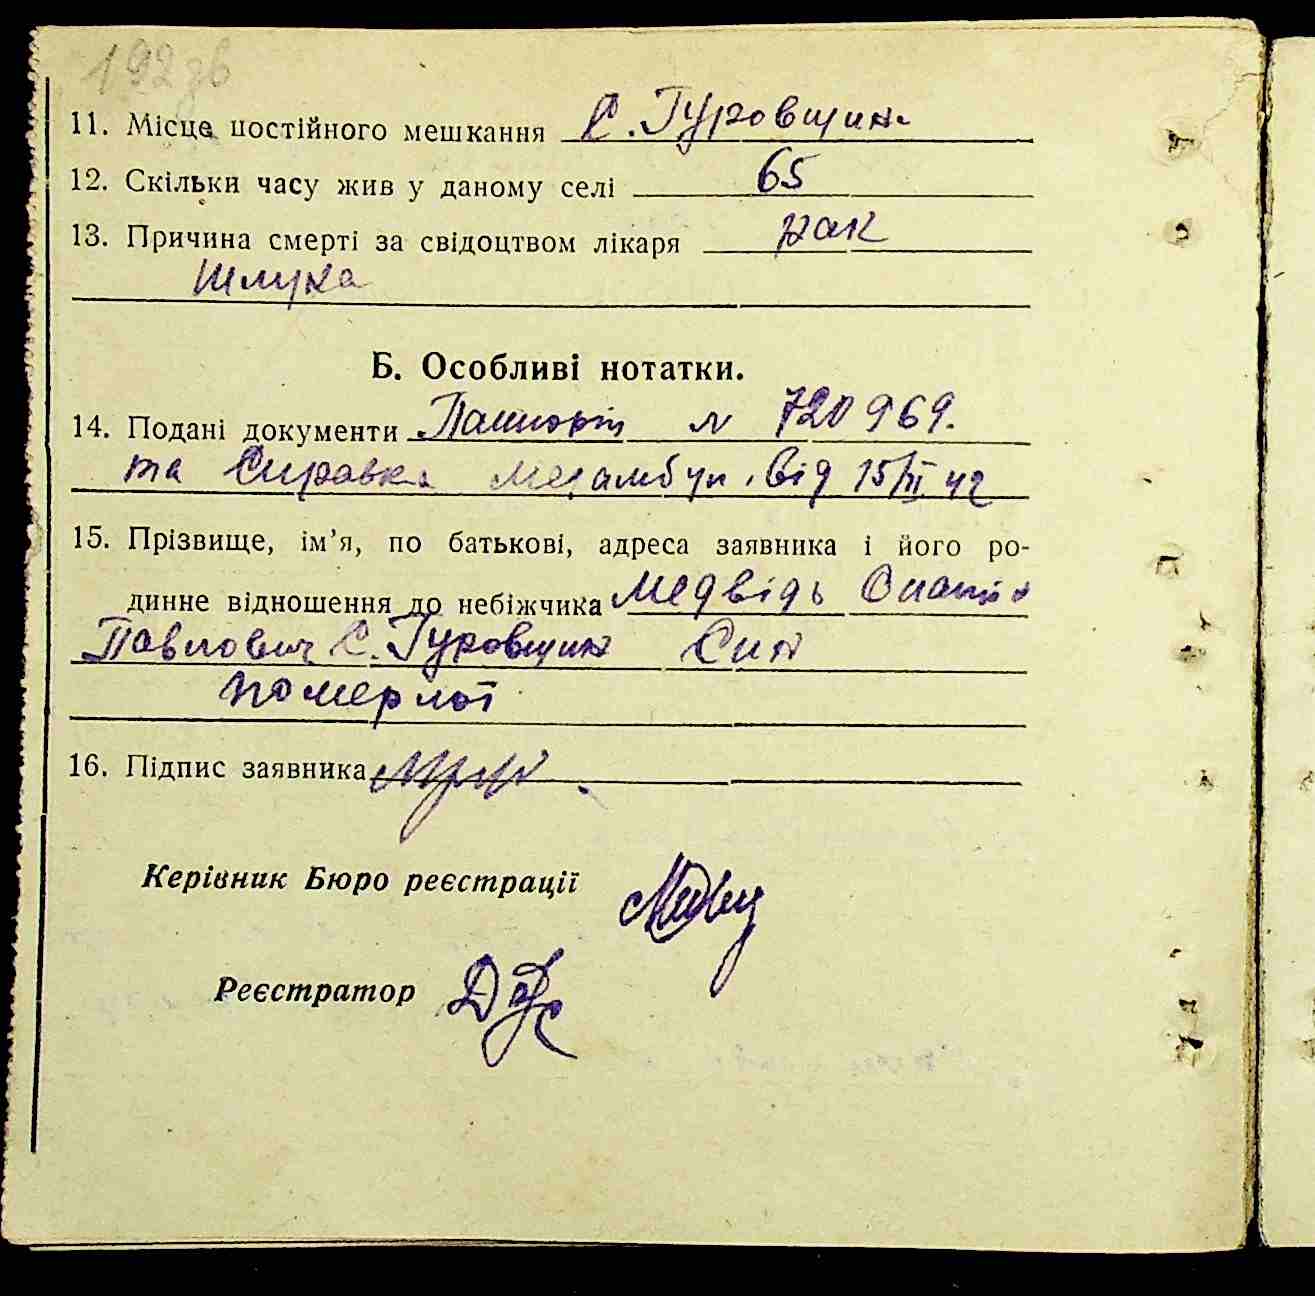 192 зв
11. Місце постійного мешкання С. Гуровщина
12. Скільки часу жив у даному селі 65
13. Причина смерті за свідоцтвом лікаря рак
шлунка
Б. Особливі нотатки.
14. Подані документи Пашпорт № 720969.
та Справка медамбул. від 15/III 42
15. Прізвище, ім’я, по батькові, адреса заявника і його ро-
динне відношення до небіжчика Медвідь
Павлович С. Гуровщина Син
померлої
16. Підпис заявника
Керівник Бюро реєстрації
Реєстратор